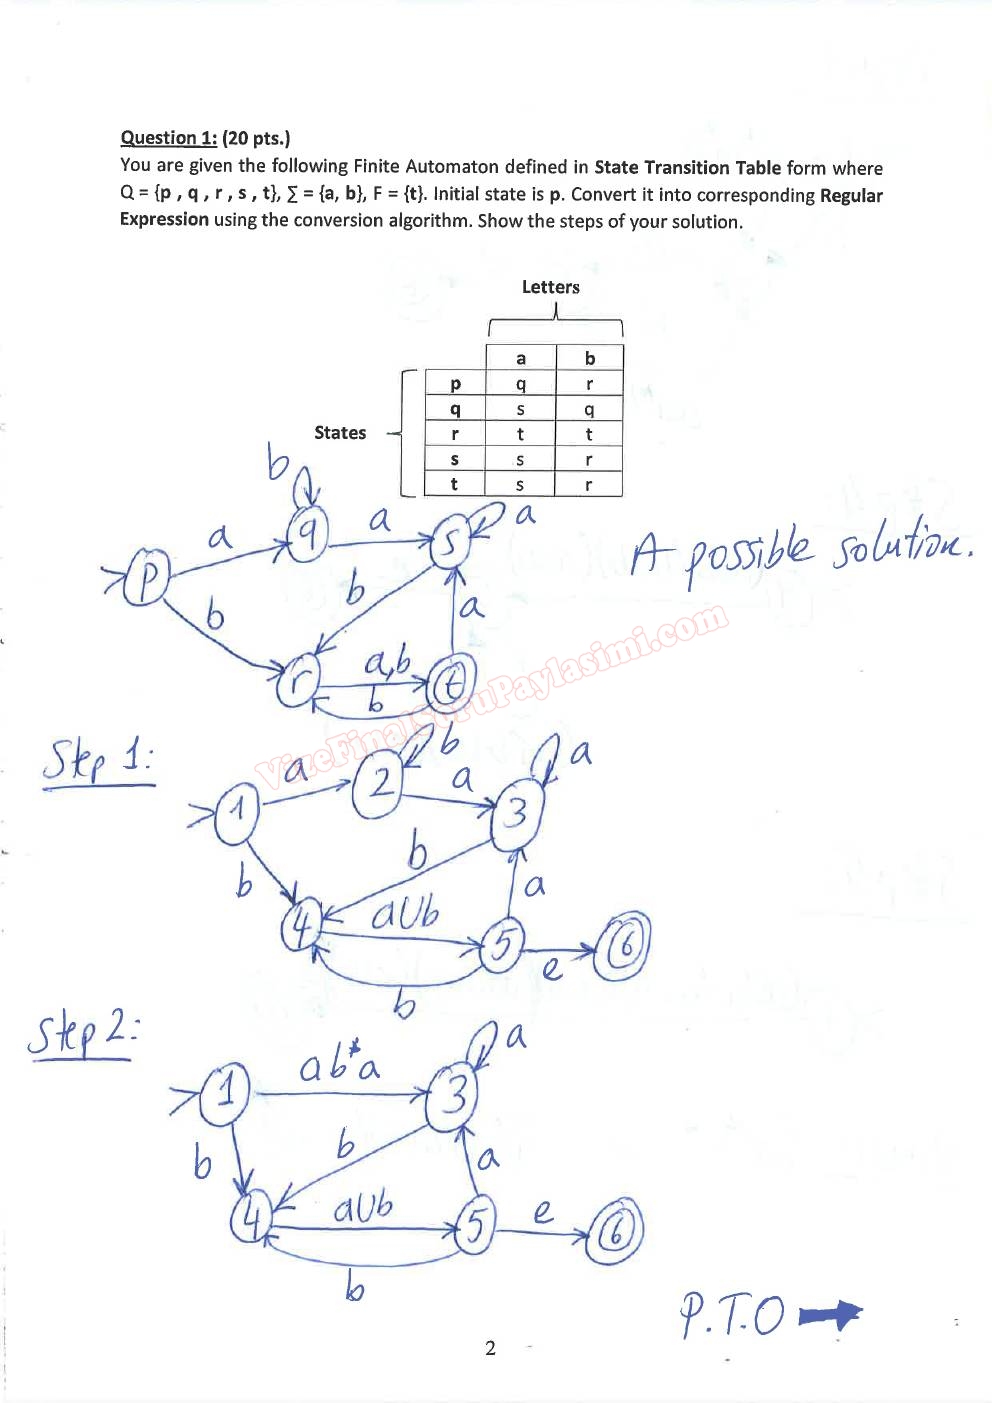 Question 1: (20 pts.)
You are given the following Finite Automaton defined in State Transition Table form where
Q = {p , q , r , s , t}, ∑ = {a, b}, F = {t}. Initial state is p. Convert it into corresponding Regular
Expression using the conversion algorithm. Show the steps of your solution.
Letters
a b
p q r
q s q
States r t t
s s r
t s r
b
a q a s a
A possible solution.
p
b b a
r a,b t
b
VizeFinalSoruPaylasimi.com
Step 1:
a 2 b a
1 a 3
b b a
4 a∪b 5 e 6
b
Step 2:
ab*a a
1 3
b b a
4 a∪b 5 e 6
b
P.T.O
2